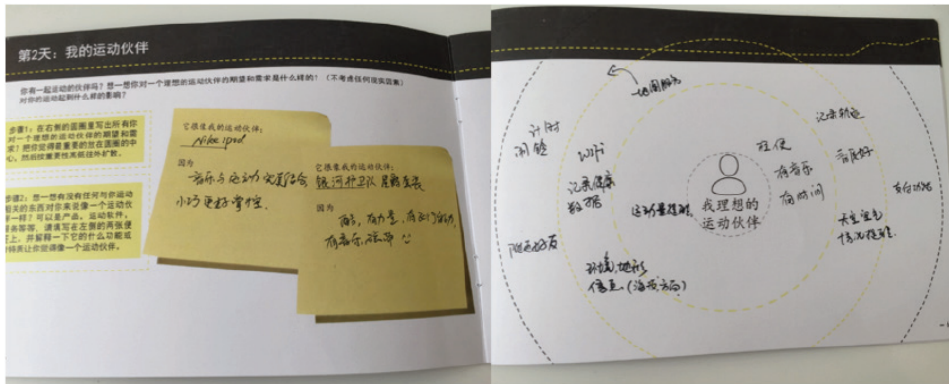 第2天：我的运动伙伴
你有一起运动的伙伴吗？想一想你对一个理想的运动伙伴的期望和需求是什么样的？（不考虑任何现实因素）
对你的运动起到什么样的影响？
步骤1：在右侧的圆圈里写出所有你
对一个理想的运动伙伴的期望和需
求？把你觉得最重要的放在圆圈的中
心，然后按重要性高低往外扩散。
步骤2：想一想有没有任何与你运动
相关的东西对你来说像一个运动伙
伴一样？可以是产品，运动软件，
服务等等，请填写在左侧的两张便
签上，并解释一下它的什么功能或
特点让你觉得像一个运动伙伴。
它很像我的运动伙伴：
Nike ipod
因为
音乐与运动完美结合
小巧更好掌控.
它很像我的运动伙伴：
银河护卫队 星爵
因为
有力量
有音乐
地图服务
计时
闹钟
WiFi
记录轨迹
轻便
音质好
有音乐
有时间
记录健康
数据
运动量提醒
我理想的
运动伙伴
天气
情况提醒
附近好友
环境,地形
信息.(海拔,方向)